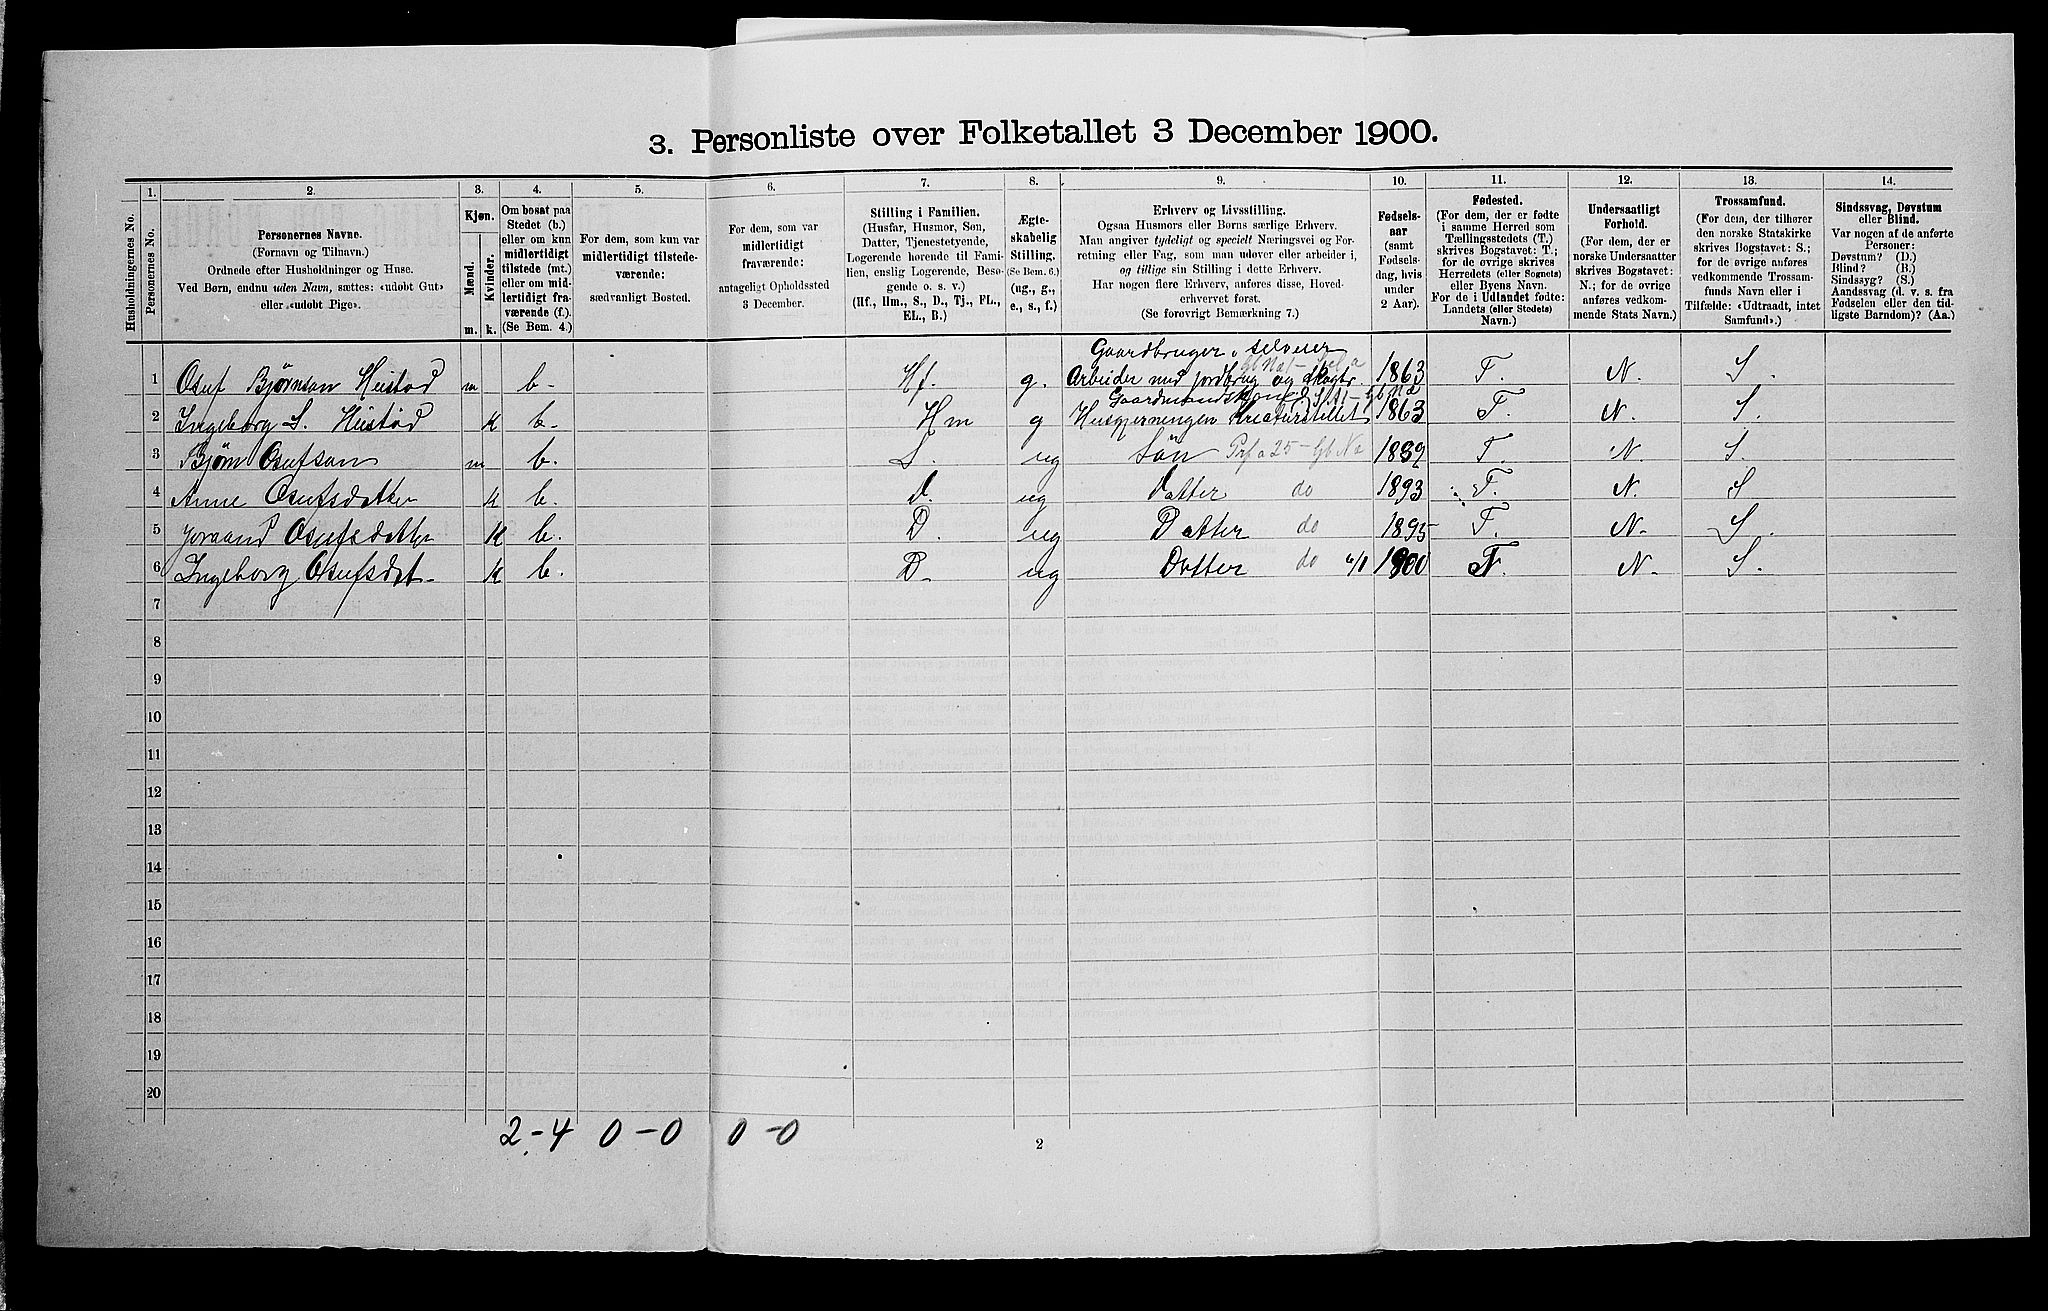 3. Personliste over Folketallet 3 December 1900.
Husholdningernes No.
1.
Personernes No.
2.
Personernes Navne.
(Fornavn og Tilnavn.)
Ordnede efter Husholdninger og Huse.
Ved Børn, endnu uden Navn, sættes: «udøbt Gut»
eller «udøbt Pige».
3.
Kjøn.
Mænd.
Kvinder.
m.
k.
4.
Om bosat paa
Stedet (b.)
eller om kun
midlertidigt
tilstede (mt.)
eller om mid-
lertidigt fra-
værende (f.)
(Se Bem. 4.)
5.
For dem, som kun var
midlertidigt tilstede-
værende:
sædvanligt Bosted.
6.
For dem, som var
midlertidigt
fraværende:
antageligt Opholdssted
3 December.
7.
Stilling i Familien.
(Husfar, Husmor, Søn,
Datter, Tjenestetyende,
Logerende hørende til Fami-
lien, enslig Logerende, Besø-
gende o. s. v.)
(Hf., Hm., S., D., Tj., FL.,
EL., B.)
8.
Ægte-
skabelig
Stilling.
(Se Bem. 6.)
(ug., g.,
e., s., f.)
9.
Erhverv og Livsstilling.
Ogsaa Husmors eller Børns særlige Erhverv.
Man angiver tydeligt og specielt Næringsvei og For-
retning eller Fag, som man udøver eller arbeider i,
og tillige sin Stilling i dette Erhverv.
Har nogen flere Erhverv, anføres disse, Hoved-
erhvervet først.
(Se forøvrigt Bemærkning 7.)
10.
Fødsels-
aar
(samt
Fødsels-
dag, hvis
under
2 Aar).
11.
Fødested.
(For dem, der er fødte
i samme Herred som
Tællingsstedets (T.)
skrives Bogstavet: T.;
for de øvrige skrives
Herredets (eller Sognets)
eller Byens Navn.
For de i Udlandet fødte:
Landets (eller Stedets)
Navn.)
12.
Undersaatligt
Forhold.
(For dem, der er
norske Undersaatter
skrives Bogstavet:
N.; for de øvrige
anføres vedkom-
mende Stats Navn.)
13.
Trossamfund.
(For dem, der tilhører
den norske Statskirke
skrives Bogstavet: S.;
for de øvrige anføres
vedkommende Trossam-
funds Navn eller i
Tilfælde: «Udtraadt, intet
Samfund».)
14.
Sindssvag, Døvstum
eller Blind.
Var nogen af de anførte
Personer:
Døvstum? (D.)
Blind? (B.)
Sindssyg? (S.)
Aandssvag (d. v. s. fra
Fødselen eller den tid-
ligste Barndom)? (Aa.)
Gaardbruger, selveier
1 Osuf Bjørnson Hustad m b. Hf. g. Arbeider med jordbrug og Skogtr. 1863 T. N. S.
2 Ingeborg S. Hustad k b. Hm g Husgjerningen Kreaturstellet 1863 T. N. S.
3 Bjørn Osufson m b. S. ug Søn 1889 T. N. S.
4 Anne Osufsdatter k b. D. ug Datter do 1893 T. N. S
5 Joraand Osufsdatter k b. D. ug Datter do 1895 T. N. S.
6 Ingeborg Osufsdat k b. D. ug Datter do 4/8 1900 T. N. S.
7
8
9
10
11
12
13
14
15
16
17
18
19
20
2-4 0-0 0-0
2